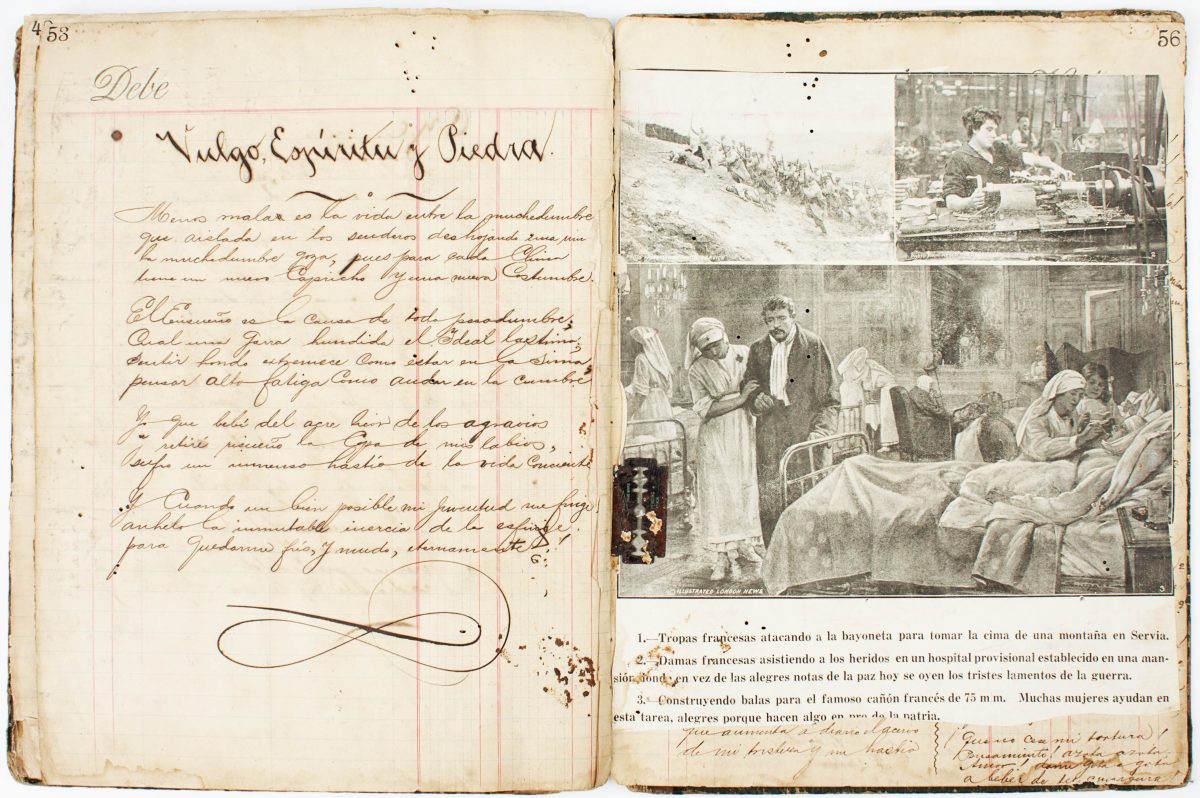 4
53
Debe
Vulgo, Espíritu y Piedra.
Menos mala es la vida entre la muchedumbre
que aislada en los senderos deshojando
la muchedumbre goza, pues para cada
tiene un nuevo Capricho y una nueva Costumbre.
El Ensueño es la causa de toda pesadumbre;
Cual una garra hundida el Ideal lastima,
sentir hondo estremece como estar en la Sima,
pensar alto fatiga como andar en la cumbre
Ya que bebí del acre licor de los agravios
y retiré risueño la Copa de mis labios,
sufro un inmenso hastío de la vida Conciente
Y Cuando un bien posible mi juventud me finge
anhelo la inmutable inercia de la esfinge
para quedarme frío, y mudo, eternamente!
G.
56
2
ILLUSTRATED LONDON NEWS
3
1.—Tropas francesas atacando a la bayoneta para tomar la cima de una montaña en Servia.
2.—Damas francesas asistiendo a los heridos en un hospital provisional establecido en una man-
sión donde en vez de las alegres notas de la paz hoy se oyen los tristes lamentos de la guerra.
3.—Construyendo balas para el famoso cañón francés de 75 m m. Muchas mujeres ayudan en
esta tarea, alegres porque hacen algo en pro de la patria.
que aumenta a diario el acervo
de mi tristeza y mi hastío
¡Que no cese mi tortura!
Pensamiento! azota azota,
Amor! dame gota a gota
a beber de tu amargura!